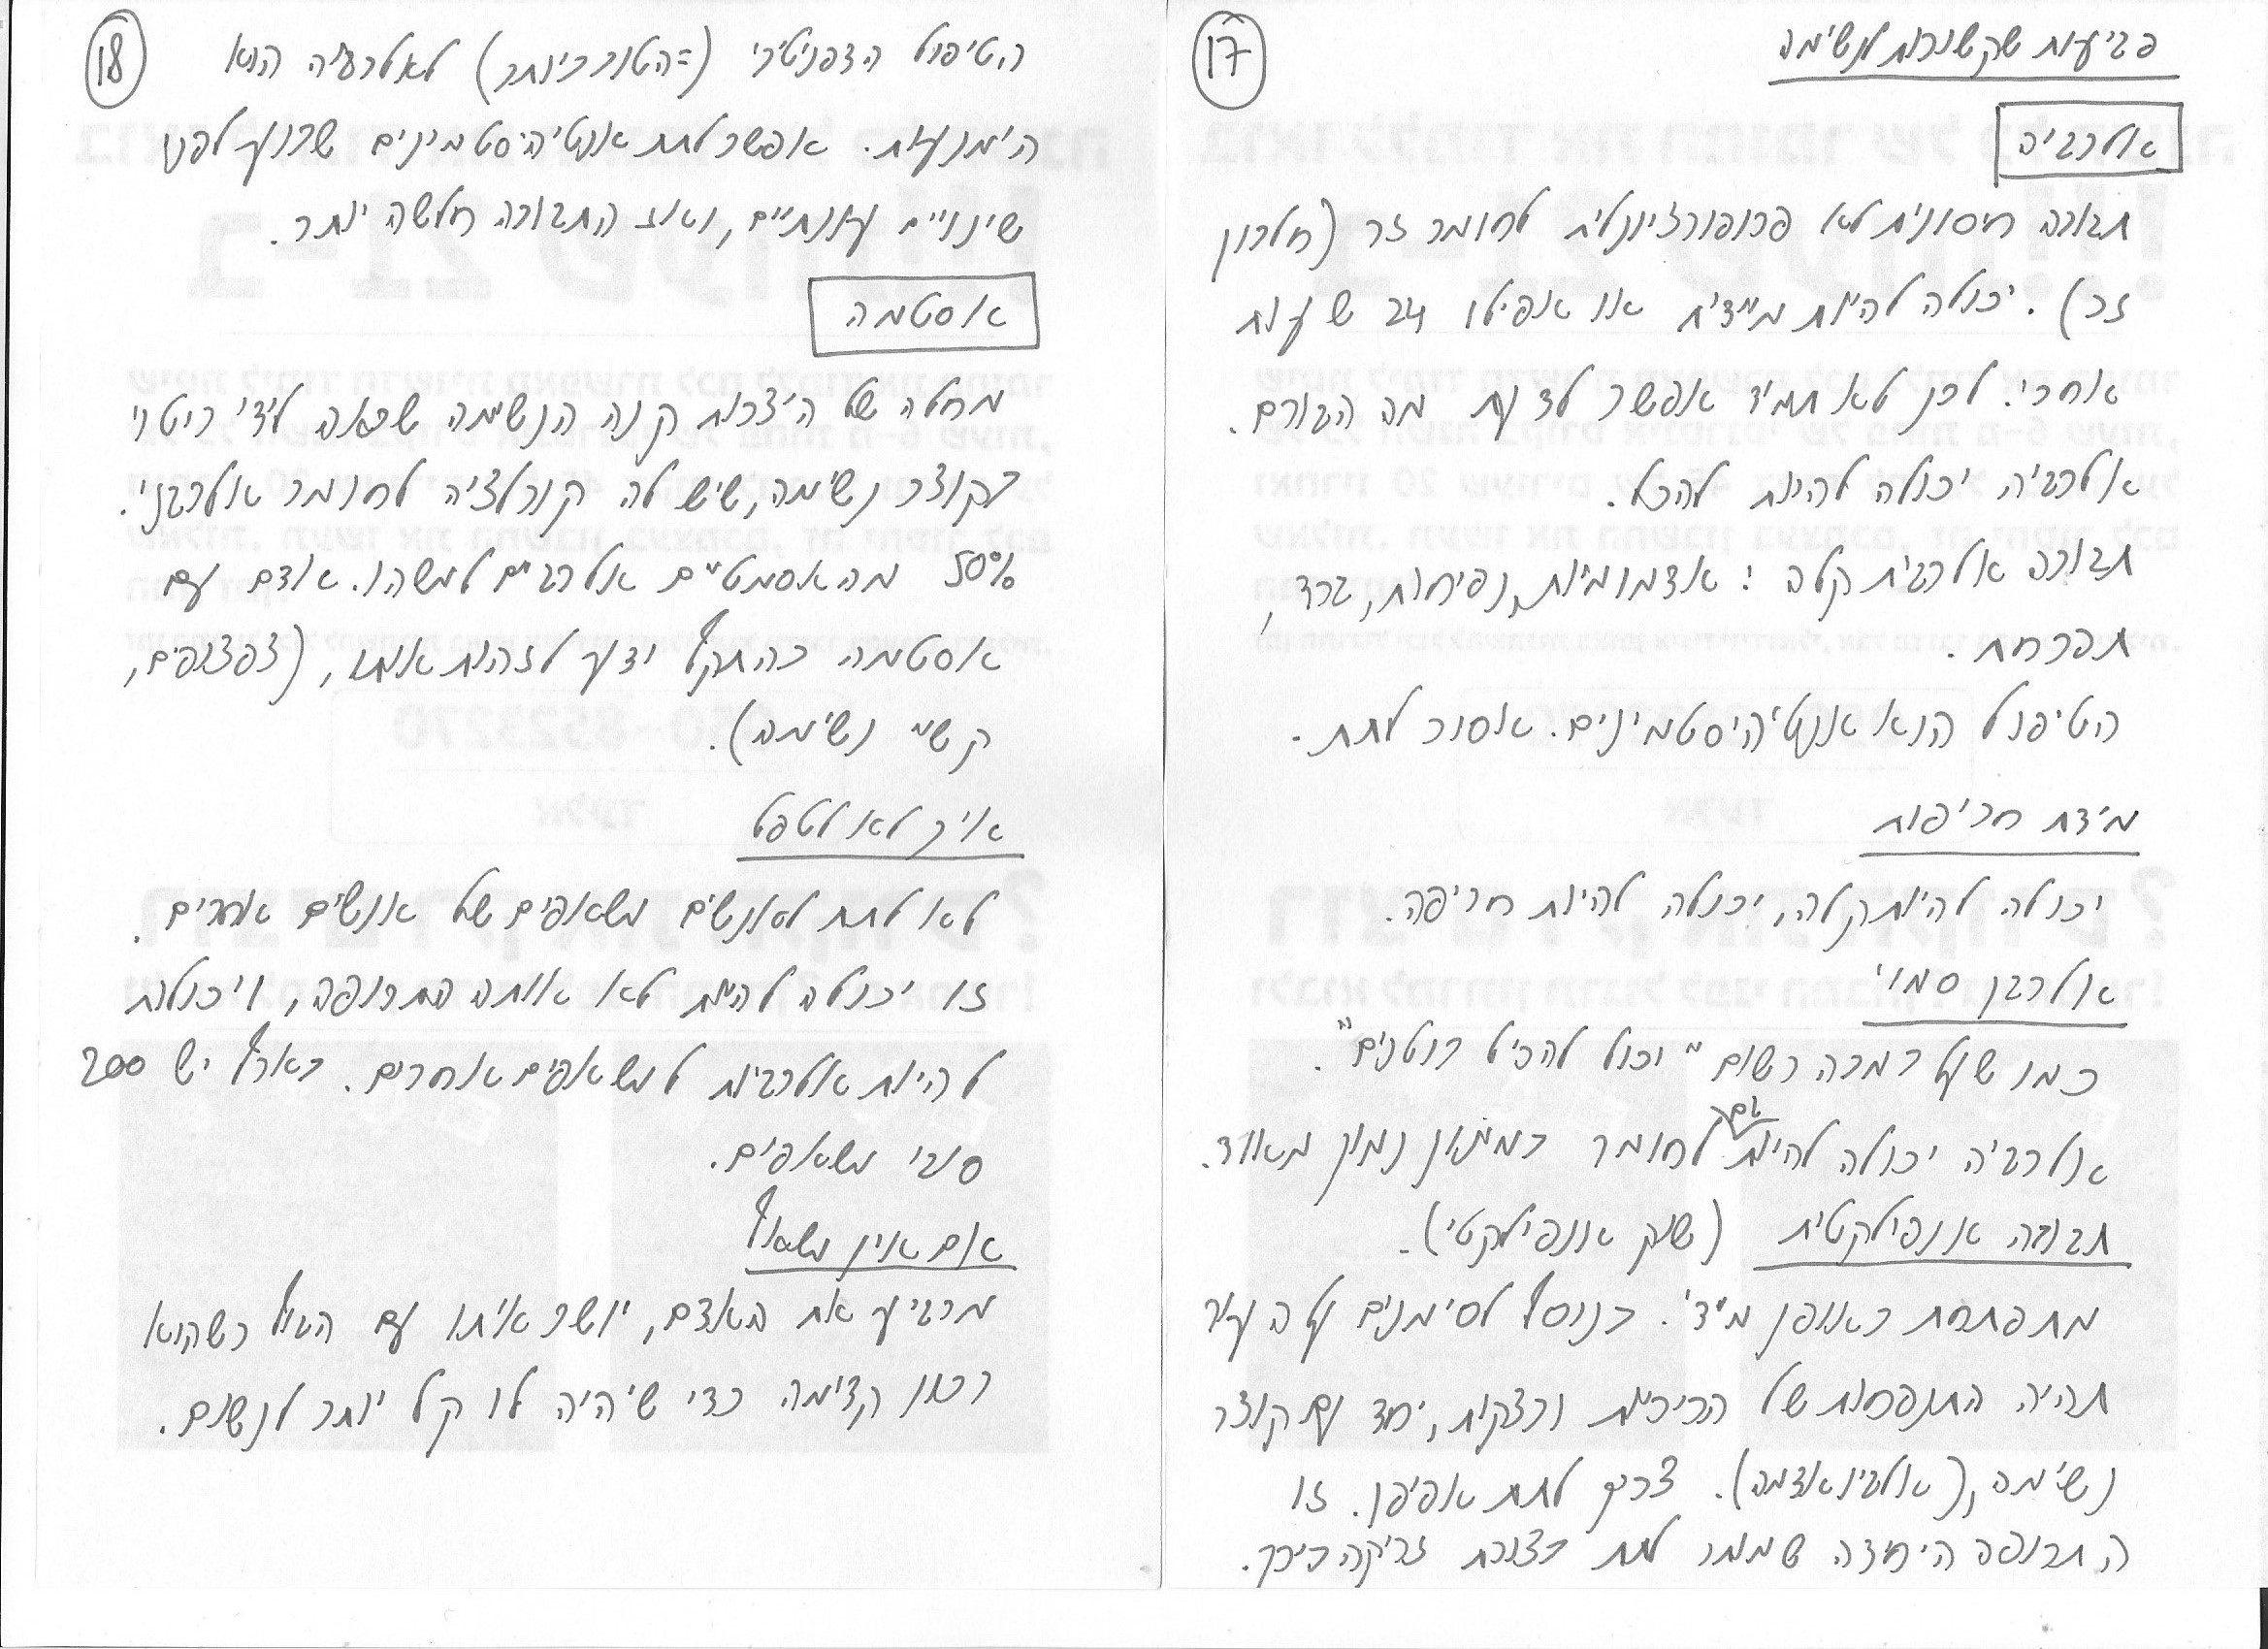 17
פגיעות שקשורות לנשימה
אלרגיה
תגובה חיסונית לא פרופורציונלית לחומר זר (חלבון
זר). יכולה להיות מיידית או אפילו 24 שעות
אחרי. לכן לא תמיד אפשר לדעת מה הגורם.
אלרגיה יכולה להיות להכל.
תגובה אלרגית קלה: אדמומיות, נפיחות, גרד,
תפרחת.
הטיפול הוא אנטיהיסטמינים. אסור לתת.
מידת חריפות
יכולה להיות קלה, יכולה להיות חריפה.
אלרגן סמוי
כמו שעל במבה רשום "יכול להכיל בוטנים".
אלרגיה יכולה להיות גם לחומר במינון נמוך מאוד.
תגובה אנפילקטית (שוק אנפילקטי).
מתפתחת באופן מיידי. בנוסף לסימנים על העור
תהיה התנפחות של הריריות ובצקות, יחד עם קוצר
נשימה, (אנגיואדמה). צריך לתת אפיפן. זו
התרופה היחידה שמותר לתת בצורת זריקה בירך.
18
הטיפול הדפניטיבי (=הטוב ביותר) לאלרגיה הוא
הימנעות. אפשר לתת אנטיהיסטמינים שבוע לפני
שינויים עונתיים, ואז התגובה חלשה יותר.
אסטמה
מחלה של היצרות קנה הנשימה שבאה לידי ביטוי
בקוצר נשימה, שיש לה קורלציה לחומר אלרגני.
50% מהאסמטיים אלרגיים למשהו. אדם עם
אסטמה בהתקף ידע לזהות אותו, (צפצופים,
קשיי נשימה).
איך לא לטפל
לא לתת לאנשים משאפים של אנשים אחרים.
זו יכולה להיות לא אותה התרופה, ויכולות
להיות אלרגיות למשאפים אחרים. בארץ יש 200
סוגי משאפים.
אם אין משאף
מרגיע את האדם, יושב איתו עם הגיל כשהוא
רכון קדימה כדי שיהיה לו קל יותר לנשום.